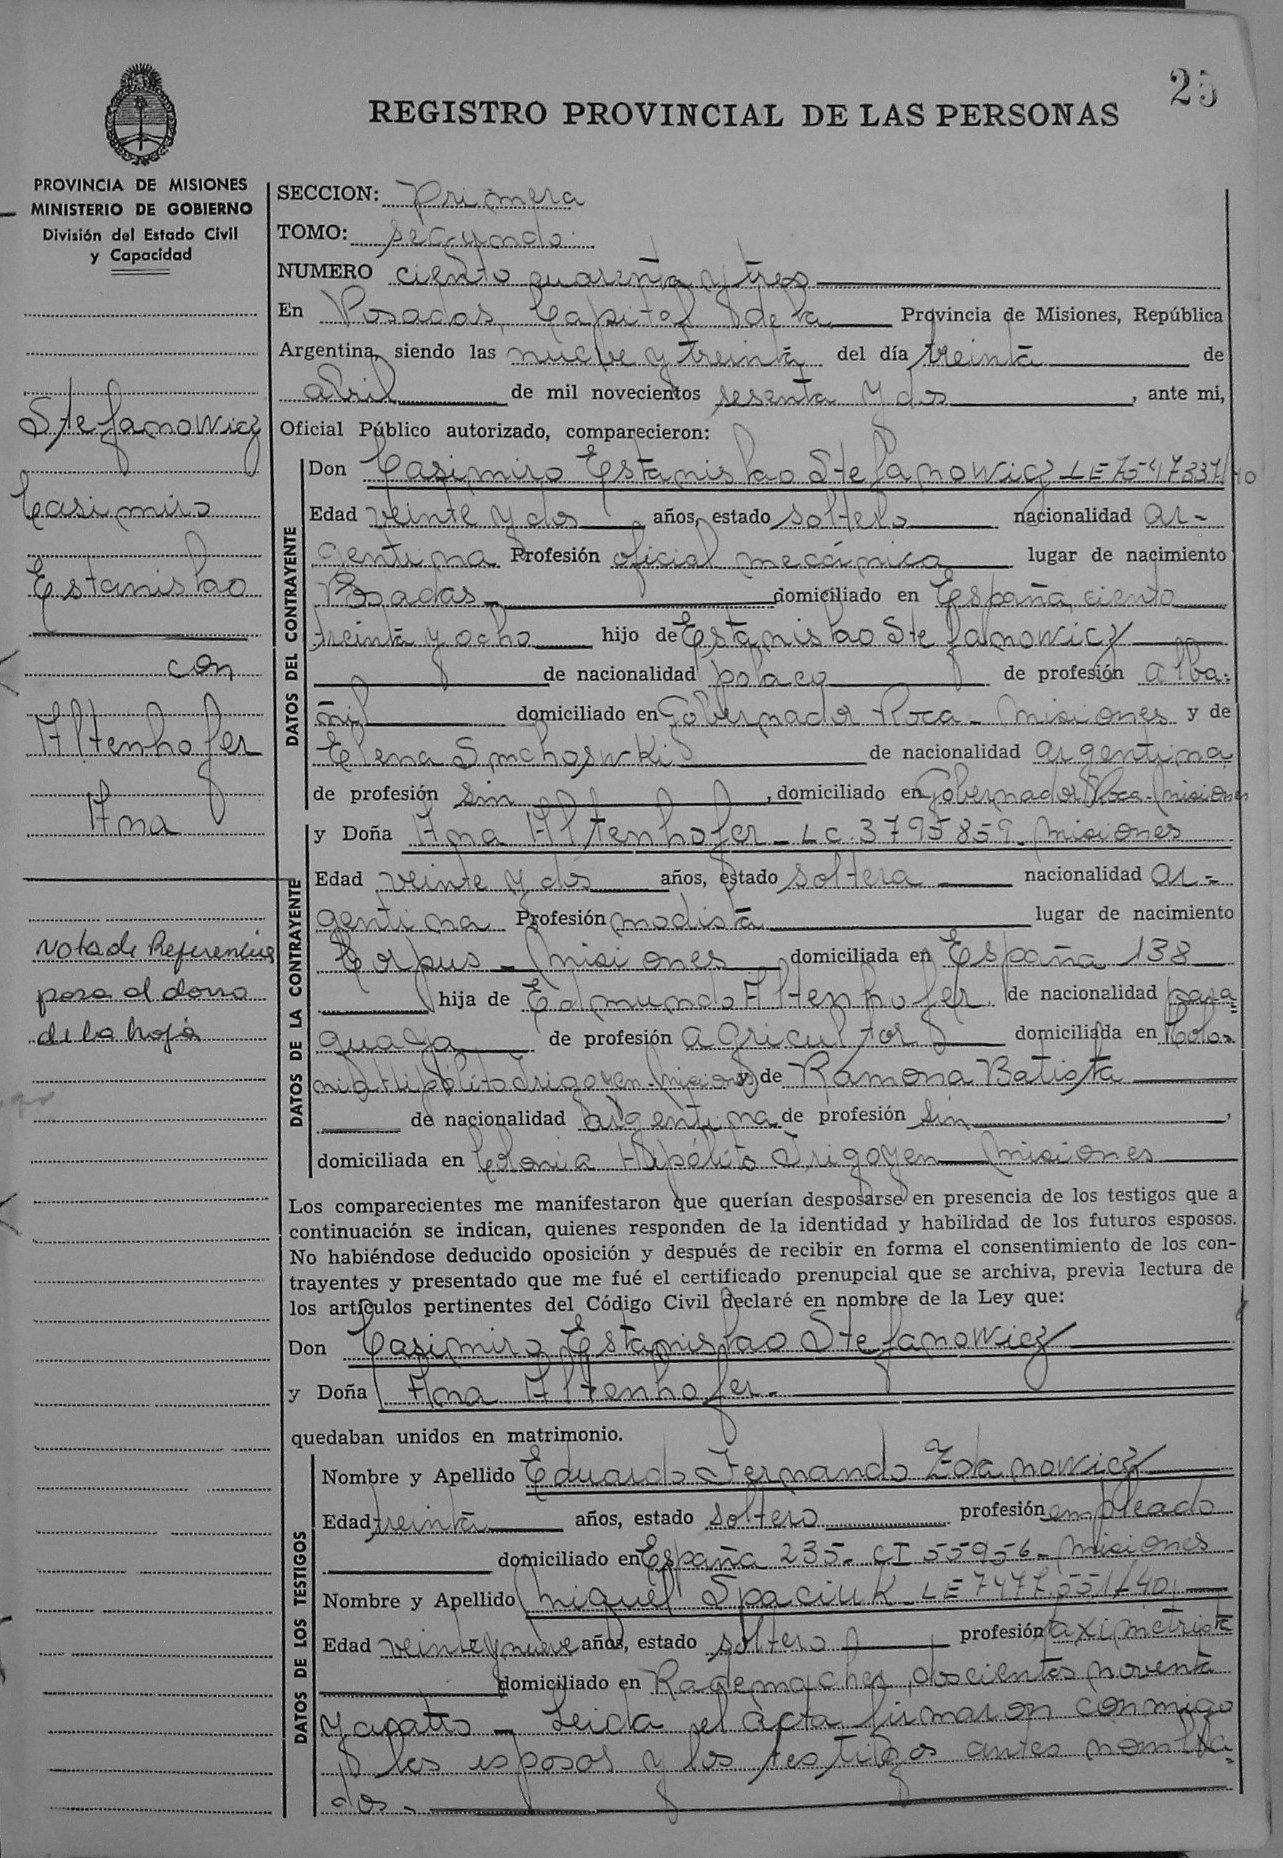 25
REGISTRO PROVINCIAL DE LAS PERSONAS
PROVINCIA DE MISIONES
MINISTERIO DE GOBIERNO
División del Estado Civil
y Capacidad
Stefanowicz
Casimiro
Estanislao
con
Altenhofer
Ana
Nota de Referencia
pasa al dorso
de la hoja
SECCION: primera
TOMO: segundo
NUMERO ciento cuarenta y tres
En Posadas, Capital de la Provincia de Misiones, República
Argentina, siendo las nueve y treinta del día treinta de
abril de mil novecientos sesenta y dos, ante mi,
Oficial Público autorizado, comparecieron:
DATOS DEL CONTRAYENTE
Don Casimiro Estanislao Stefanowicz LE
Edad veinte y dos años, estado soltero nacionalidad ar-
gentina Profesión oficial mecánico lugar de nacimiento
Posadas domiciliado en España ciento
treinta y ocho hijo de Estanislao Stefanowicz
de nacionalidad polaca de profesión alba-
ñil domiciliado en Gobernador Roca - Misiones y de
Elena de nacionalidad argentina
de profesión sin, domiciliado en Gobernador Roca - Misiones
y Doña Ana Altenhofer - LC. 3795859 - Misiones
DATOS DE LA CONTRAYENTE
Edad veinte y dos años, estado soltera nacionalidad ar-
gentina Profesión modista lugar de nacimiento
Corpus - Misiones domiciliada en España 138
hija de Edmundo Altenhofer de nacionalidad para-
guaya de profesión agricultor domiciliada en Colo-
nia Hipólito Irigoyen - Misiones y de Ramona Batista
de nacionalidad argentina de profesión sin,
domiciliada en Colonia Hipólito Irigoyen Misiones
Los comparecientes me manifestaron que querían desposarse en presencia de los testigos que a
continuación se indican, quienes responden de la identidad y habilidad de los futuros esposos.
No habiéndose deducido oposición y después de recibir en forma el consentimiento de los con-
trayentes y presentado que me fué el certificado prenupcial que se archiva, previa lectura de
los artículos pertinentes del Código Civil declaré en nombre de la Ley que:
Don Casimiro Estanislao Stefanowicz
y Doña Ana Altenhofer.
quedaban unidos en matrimonio.
DATOS DE LOS TESTIGOS
Nombre y Apellido Eduardo Fernando Zdanowicz
Edad treinta años, estado soltero profesión empleado
domiciliado en España 235 - CI 55956 - Misiones
Nombre y Apellido Miguel Spaciuk - LE
Edad veinte y nueve años, estado soltero profesión taximetrista
domiciliado en Rademacher doscientos noventa
y cuatro - Leida el acta firmaron conmigo
los esposos y los testigos antes nombra-
dos.